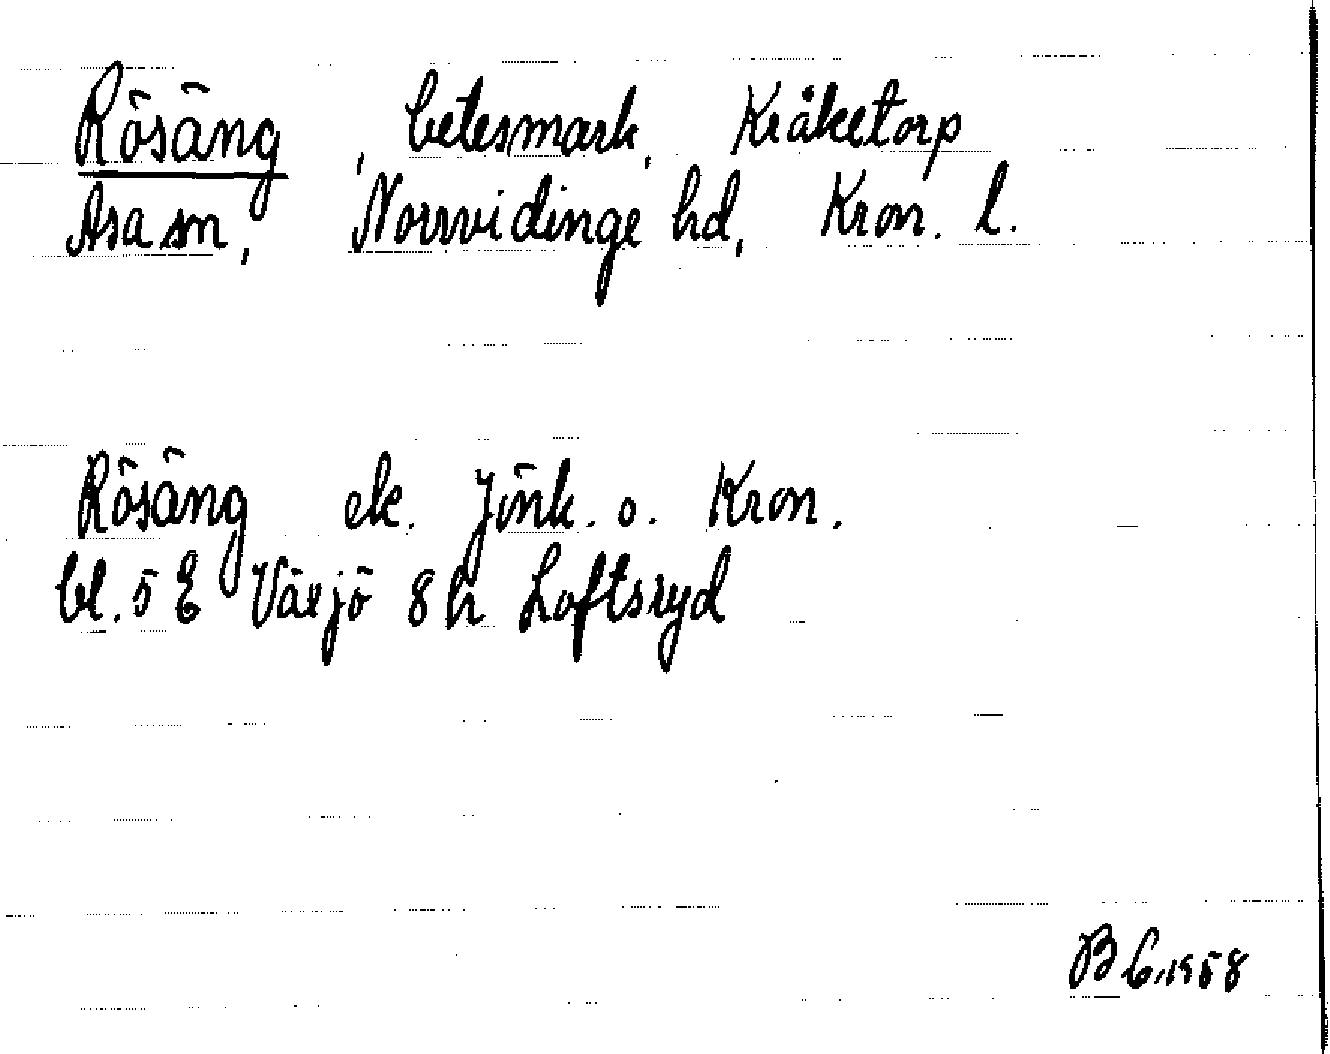 Rösäng, betesmark, Kråketorp
Asa sn, Norrvidinge hd, Kron. l.
Rösäng ek. Jönk. o. Kron.
bl. 5 E Växjö 8 h Loftsryd
B 6, 1958